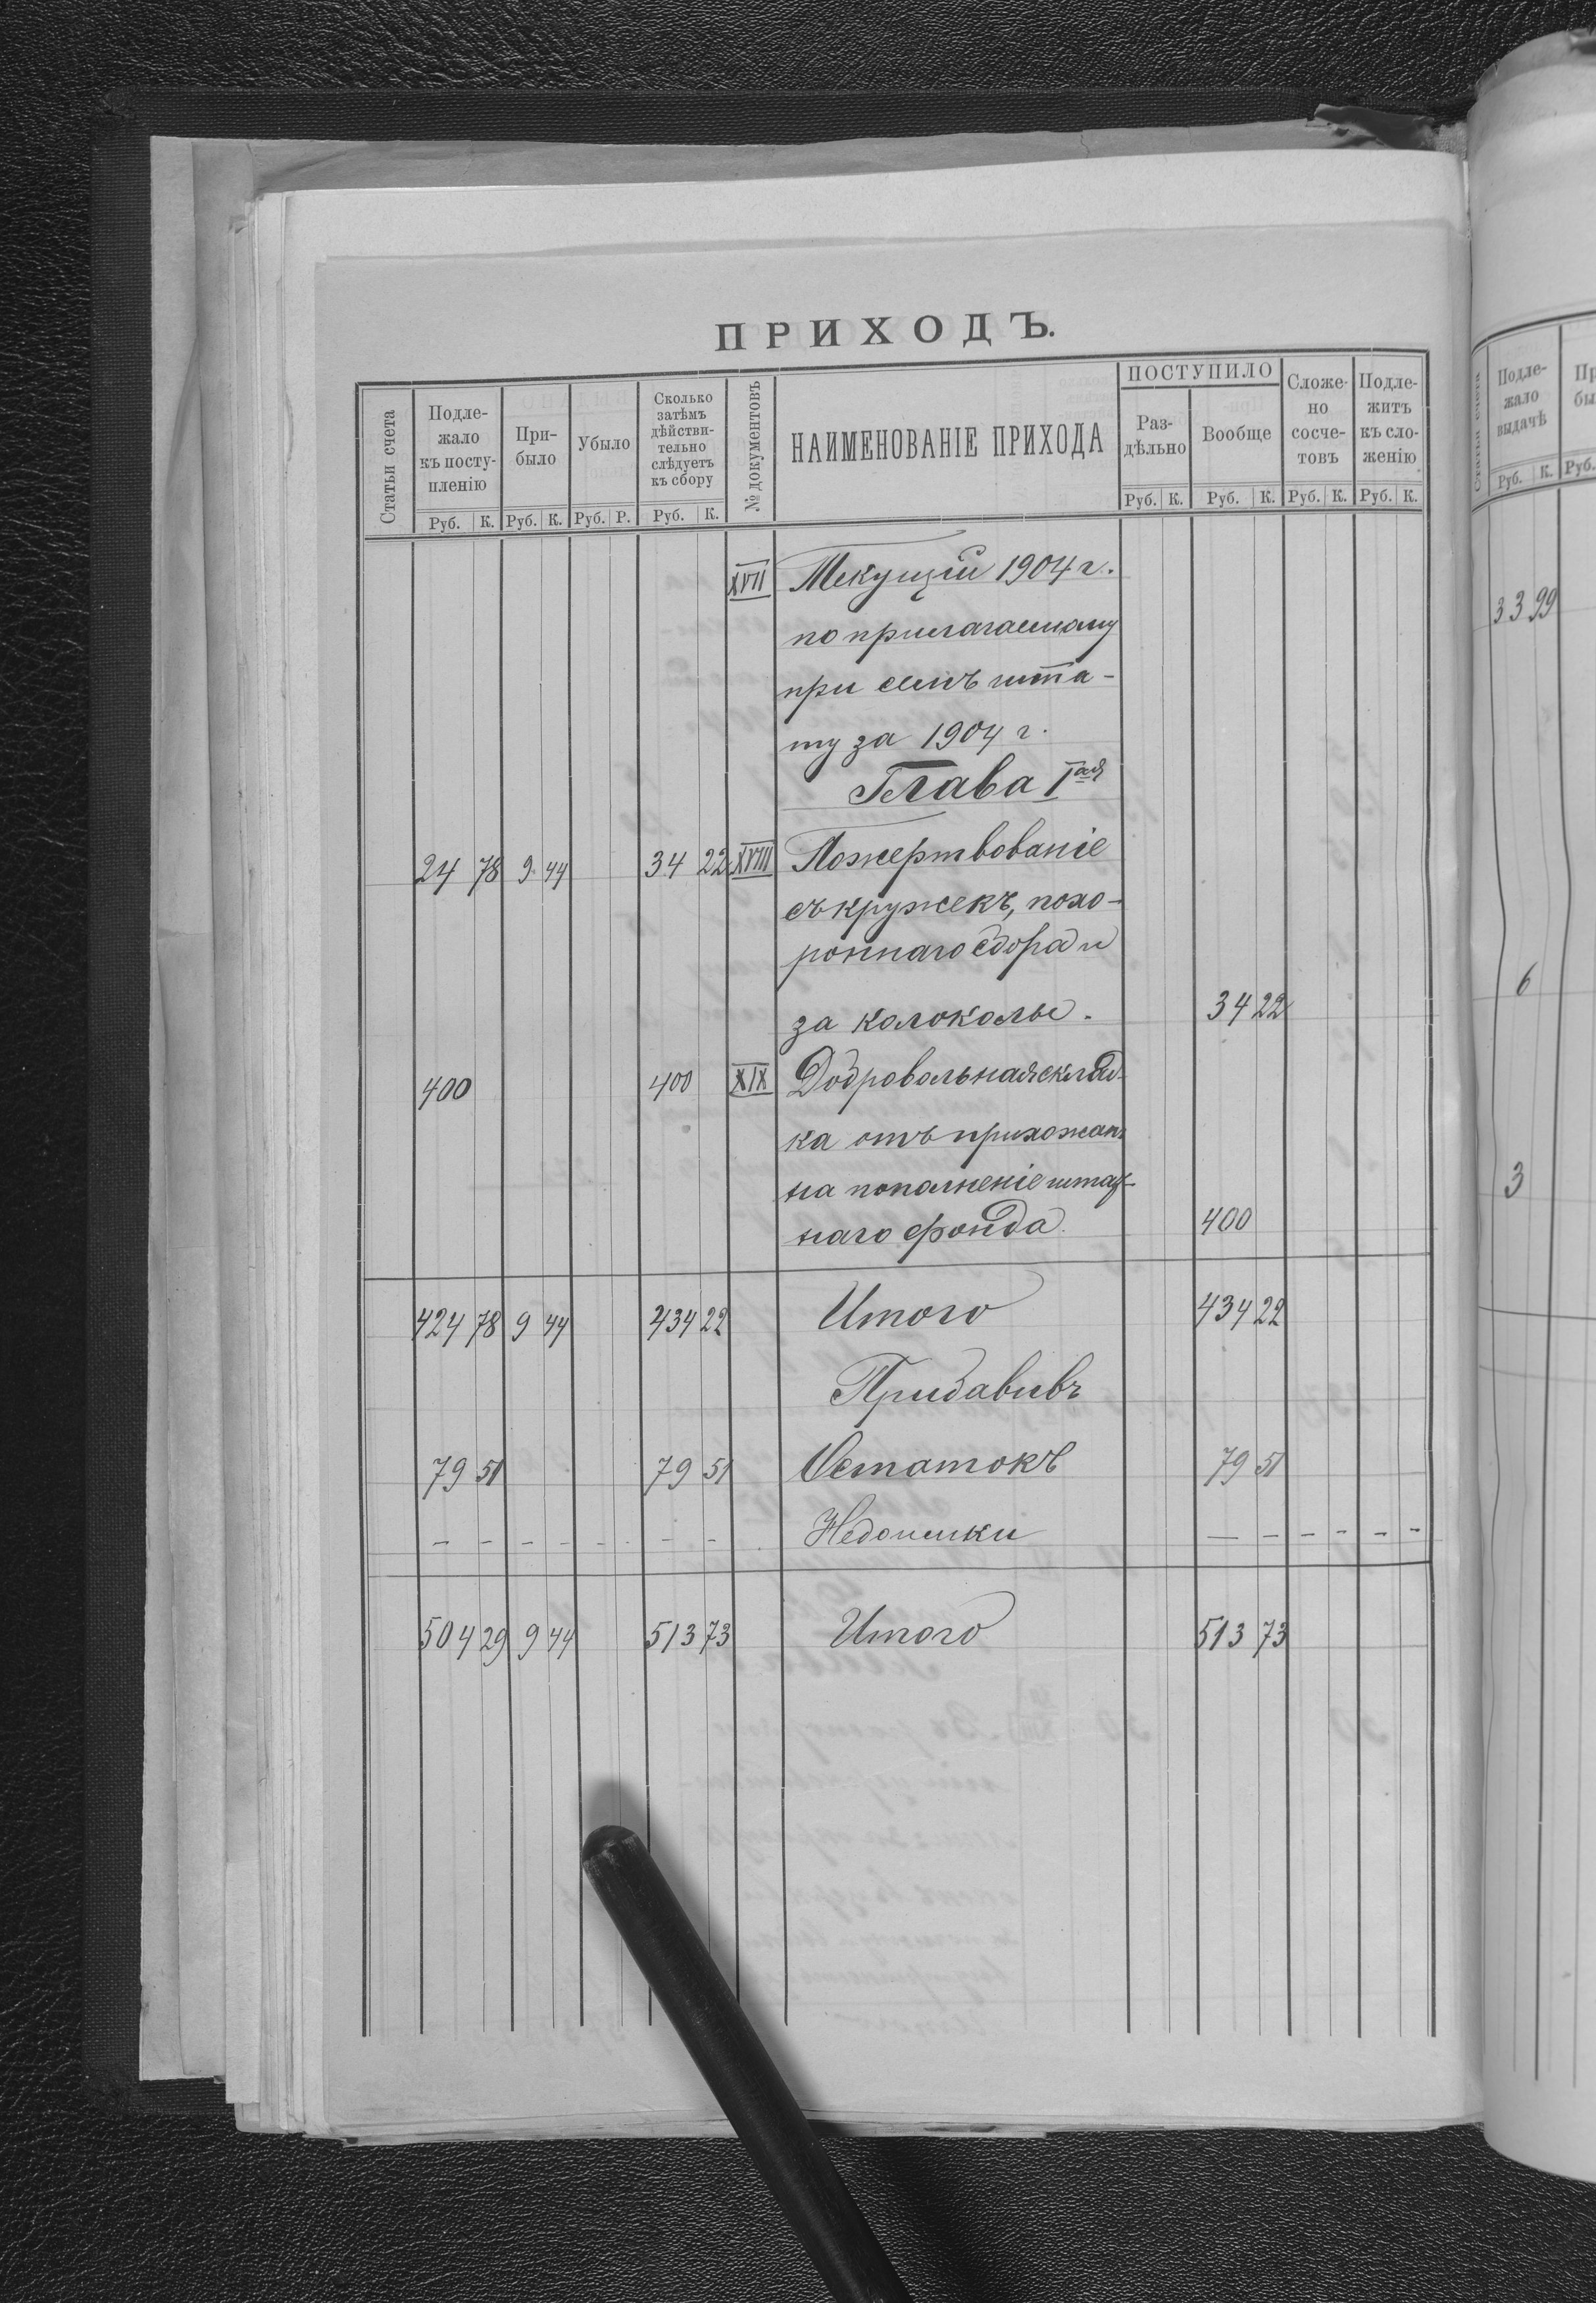 ПРИХОДЪ.
Статьи счета
Подле-
жало
къ посту-
пленію
При-
было
Убыло
Сколько
затѣмъ
дѣйстви-
тельно
слѣдуетъ
къ сбору
№ документовъ
НАИМЕНОВАНІЕ ПРИХОДА
ПОСТУПИЛО
Раз-
дѣльно
Вообще
Сложе-
но
сосче-
товъ
Подле-
житъ
къ сло-
женію
Руб. К. Руб. К. Руб. Р. Руб. К. Руб. К. Руб. К. Руб. К. Руб. К.
XVII Текущій 1904 г.
по прилагаемому
при семъ шта-
ту за 1904 г.
Глава Iая
24 78 9 44 34 22 XVIII Пожертвованіе
съ кружекъ, похо-
роннаго сбора и
за колоколы. 34 22
400 400 XIX Добровольная склад-
ка отъ прихожанъ
на пополненіе штат-
наго фонда. 400
424 78 9 44 434 22 Итого 434 22
Придавивъ
79 51 79 51 Остатокъ 79 51
– – – – – – – – Недоимки – – – – – –
504 29 9 44 513 73 Итого 513 73
Статьи счета
Подле-
жало
выдачѣ
Пр
бы
Руб. К. Руб.
33 99
6
3